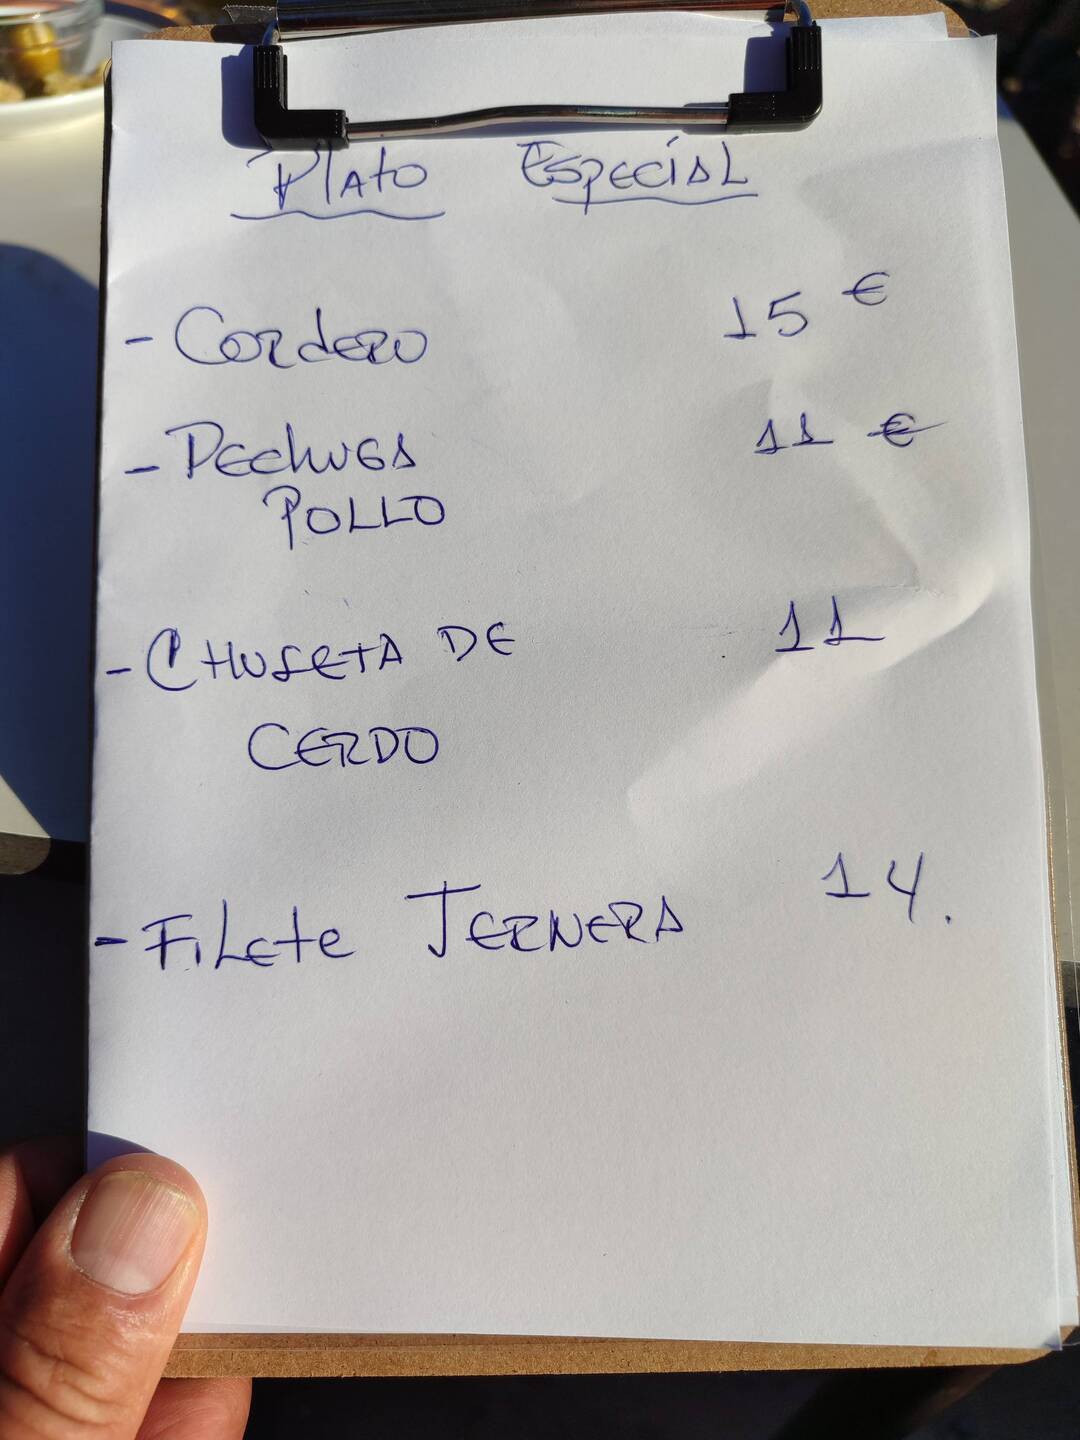 Plato Especial
- Cordero 15 €
- Pechuga 11 €
Pollo
- Chuleta de 11
Cerdo
- Filete Ternera 14.